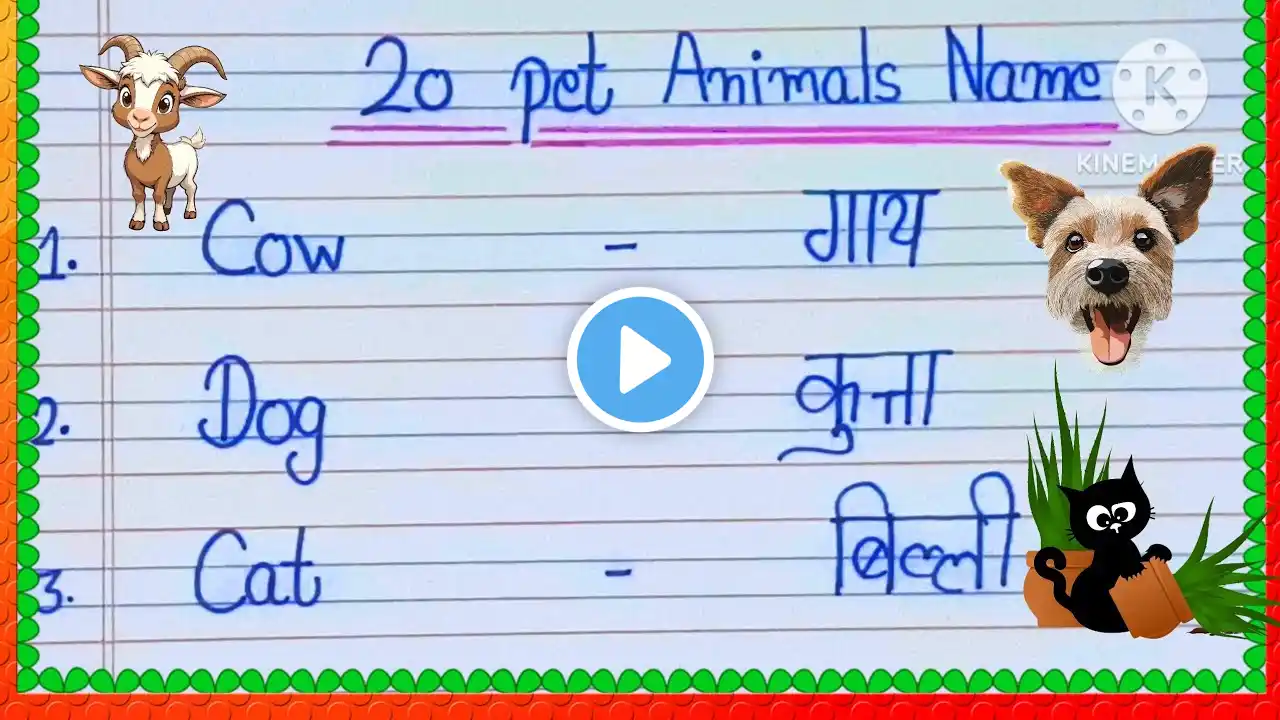 20 pet Animals Name
1. Cow - गाय
2. Dog कुत्ता
3. Cat - बिल्ली